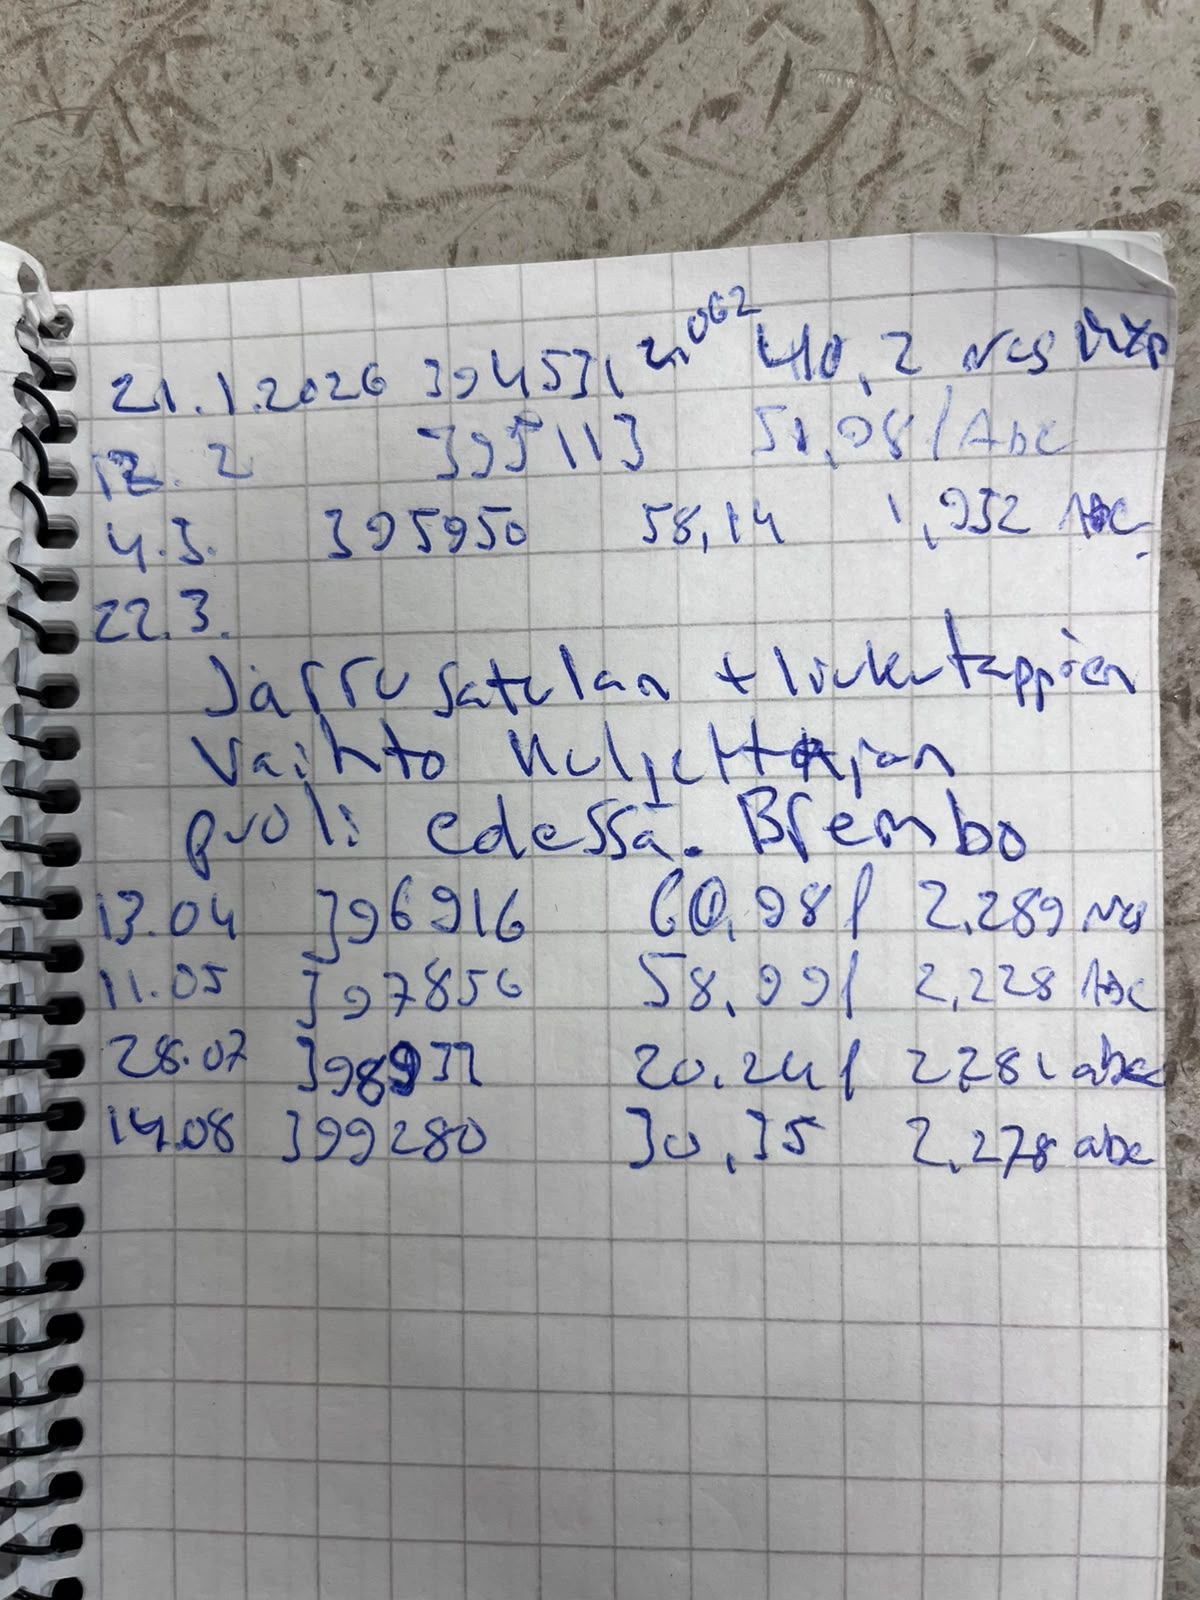 21.1.2026 394531, 410,2 Nes
12. 2 395113 51,98 l Abc
4.3. 395950 58,14 1,952 Abc
22.3.
Jarrusatulan + liukutappien
Vaihto Kuljettajan
puoli edessä. Brembo
13.04 396916 60,98 l 2,289 Nes
11.05 397856 58,99 l 2,228 Abc
28.07 398933 20.24 l 2281 abc
14.08 399280 30,35 2,278 abc